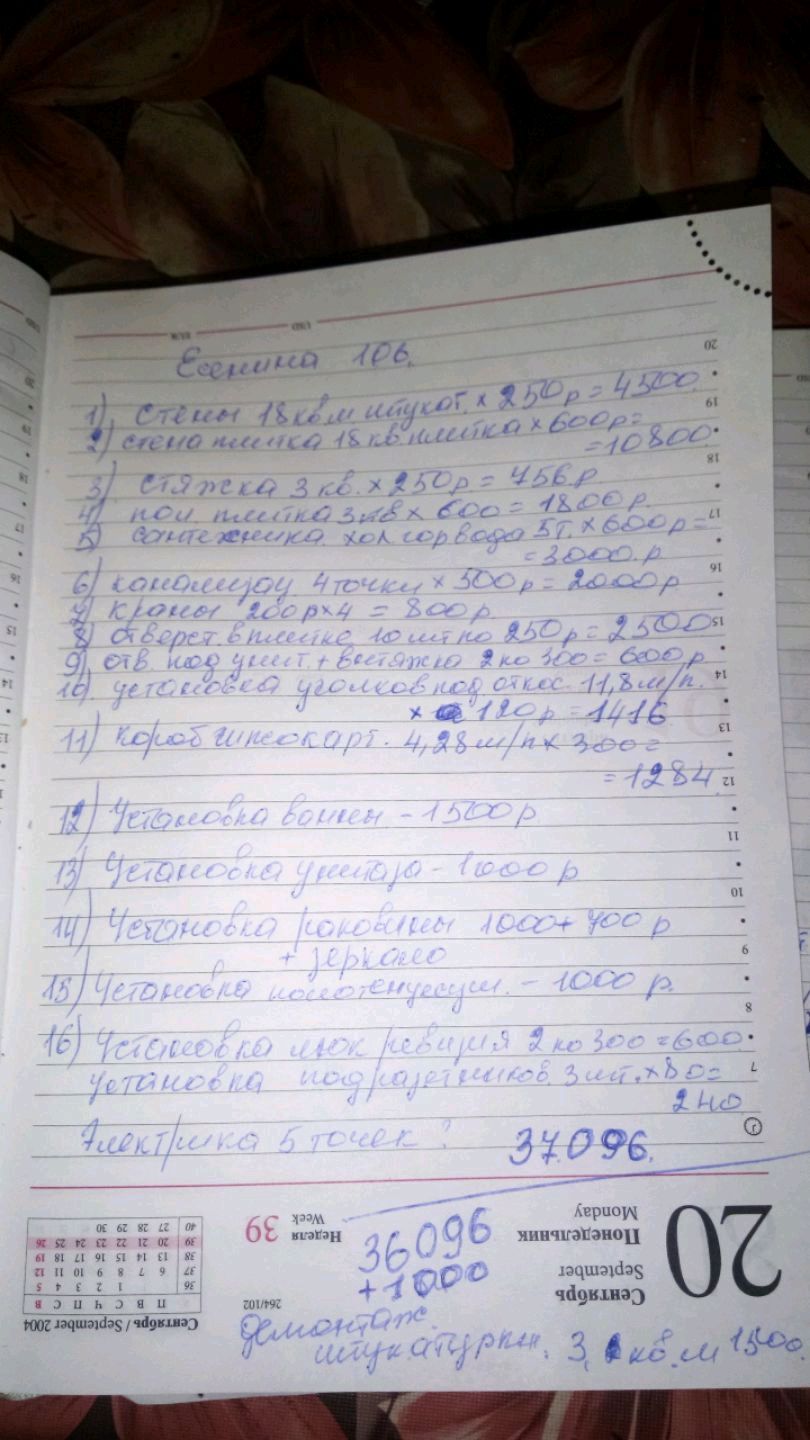 Есенина 106.
1) Стены 18 кв.м штукат. × 250р = 4500.
2) стена плитка 18 кв плитка × 600р=
=10800
3) Стяжка 3 кв. × 250р = 756р.
4) пол плитка 3 кв × 600 = 1800р.
5) сантехника. хол гор вода 5т. × 600р=
=3000.р
6) канализац. 4 точки × 500р = 2000р
7) краны 200р×4 = 800р.
8) отверст. в плитке 10 шт по 250р = 2500
9) отв. под унит. + вытяжка 2 по 300 = 600р
10) установка уголков под откос. 11,8 м/п.
× 120р = 1416
11) короб гипсокарт. 4,28 м/п × 300=
=1284.
12) Установка ванны - 1500р
13) Установка унитаза - 1000р
14) Установка раковины 1000+700р
+ зеркало
15) Установка полотенцесуш. - 1000р.
16) Установка люк ревизия 2 по 300 =600.
установка подразетников. 3шт. × 80=
240
Электрика 5 точек ?
37.096.
36096
+1000
демонтаж.
штукатурки. 3, кв.м 1500.
EUR
USD
20
19
18
17
16
15
14
13
12
11
10
9
8
7
20
Понедельник
Monday
Сентябрь
September
39
Неделя
Week
264/102
Сентябрь / September 2004
П В С Ч П С В
36 1 2 3 4 5
37 6 7 8 9 10 11 12
38 13 14 15 16 17 18 19
39 20 21 22 23 24 25 26
40 27 28 29 30